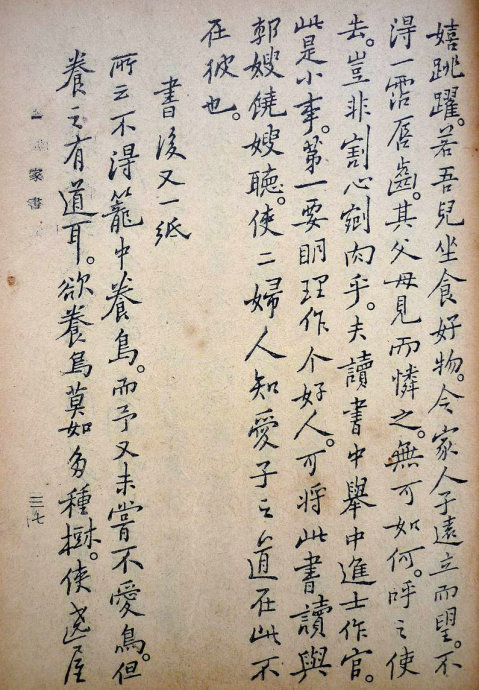 嬉跳躍。若吾兒坐食好物。令家人子遠立而望。不
得一霑唇齒。其父母見而憐之。無可如何。呼之使
去。豈非割心剜肉乎。夫讀書中舉中進士作官。
此是小事。第一要明理作个好人。可將此書讀與
郭嫂饒嫂聽。使二婦人知愛子之道在此不
在彼也。
書後又一紙
所云不得籠中養鳥。而予又未嘗不愛鳥。但
養之有道耳。欲養鳥莫如多種樹。使遶屋
家書
三七